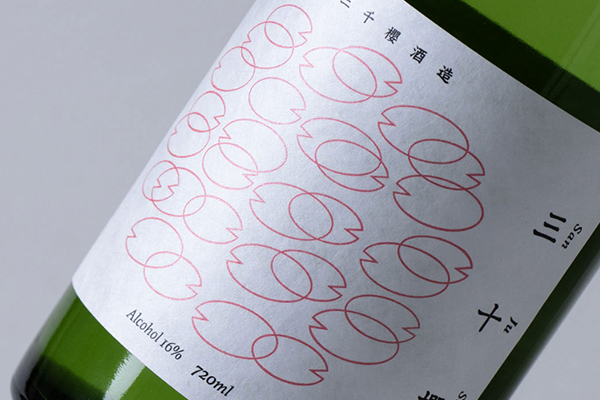 三千櫻酒造
三十
San Jū
Alcohol 16%
720ml